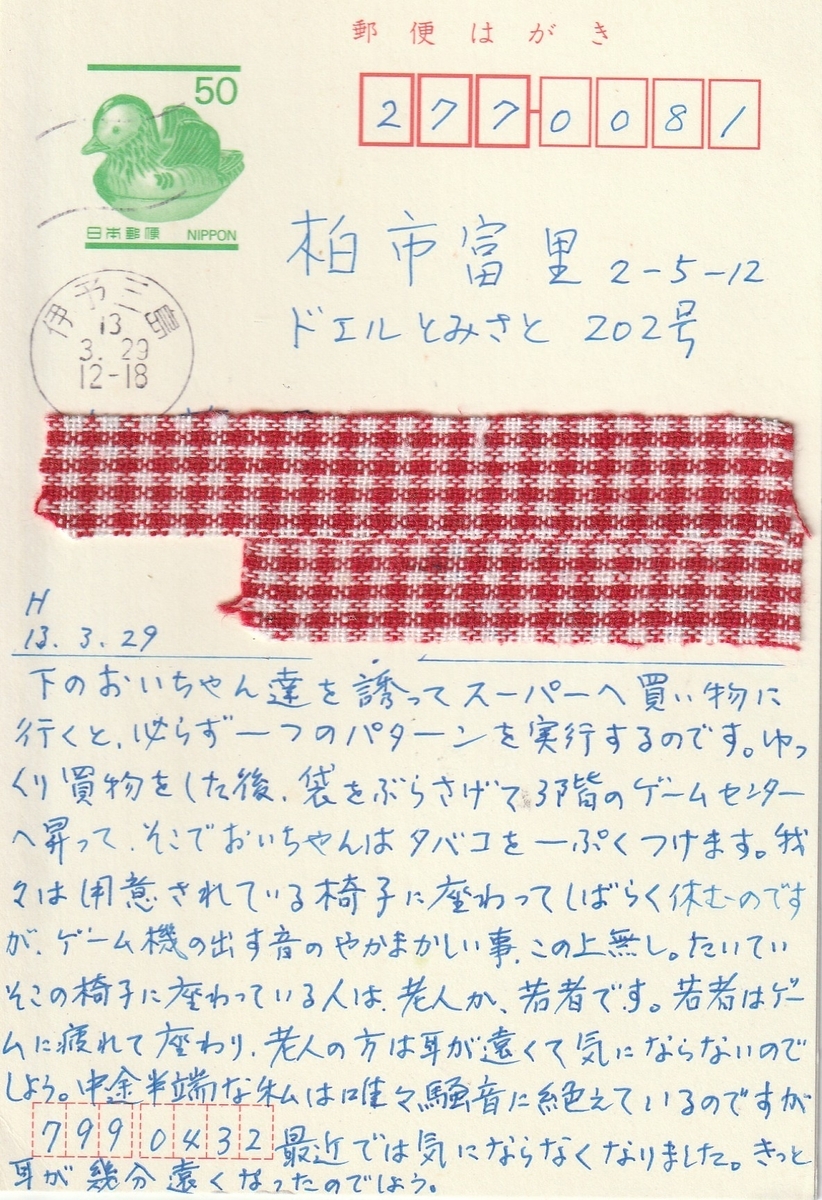 郵便はがき
50
日本郵便 NIPPON
277-0081
柏市富里 2-5-12
ドエルとみさと 202号
伊予三島
13
3.29
12-18
H
13.3.29
下のおいちゃん達を誘ってスーパーへ買い物に
行くと、必らず一つのパターンを実行するのです。ゆっ
くり買物をした後、袋をぶらさげて3階のゲームセンター
へ昇って、そこでおいちゃんはタバコを一ぷくつけます。我
々は用意されている椅子に座わってしばらく休むのです
が、ゲーム機の出す音のやかましい事、この上無し。たいてい
そこの椅子に座わっている人は、老人か、若者です。若者はゲー
ムに疲れて座わり、老人の方は耳が遠くて気にならないので
しょう。中途半端な私は唯々騒音に絶えているのですが
799 0432 最近では気にならなくなりました。きっと
耳が幾分遠くなったのでしょう。